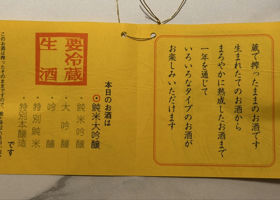 蔵で搾ったままのお酒です
生まれたてのお酒から
まろやかに熟成したお酒まで
一年を通じて
いろいろなタイプのお酒が
お楽しみいただけます
要冷蔵
生酒
本日のお酒は
純米大吟醸
・純米吟醸
・大吟醸
・吟醸
・特別純米
・特別本醸造
です